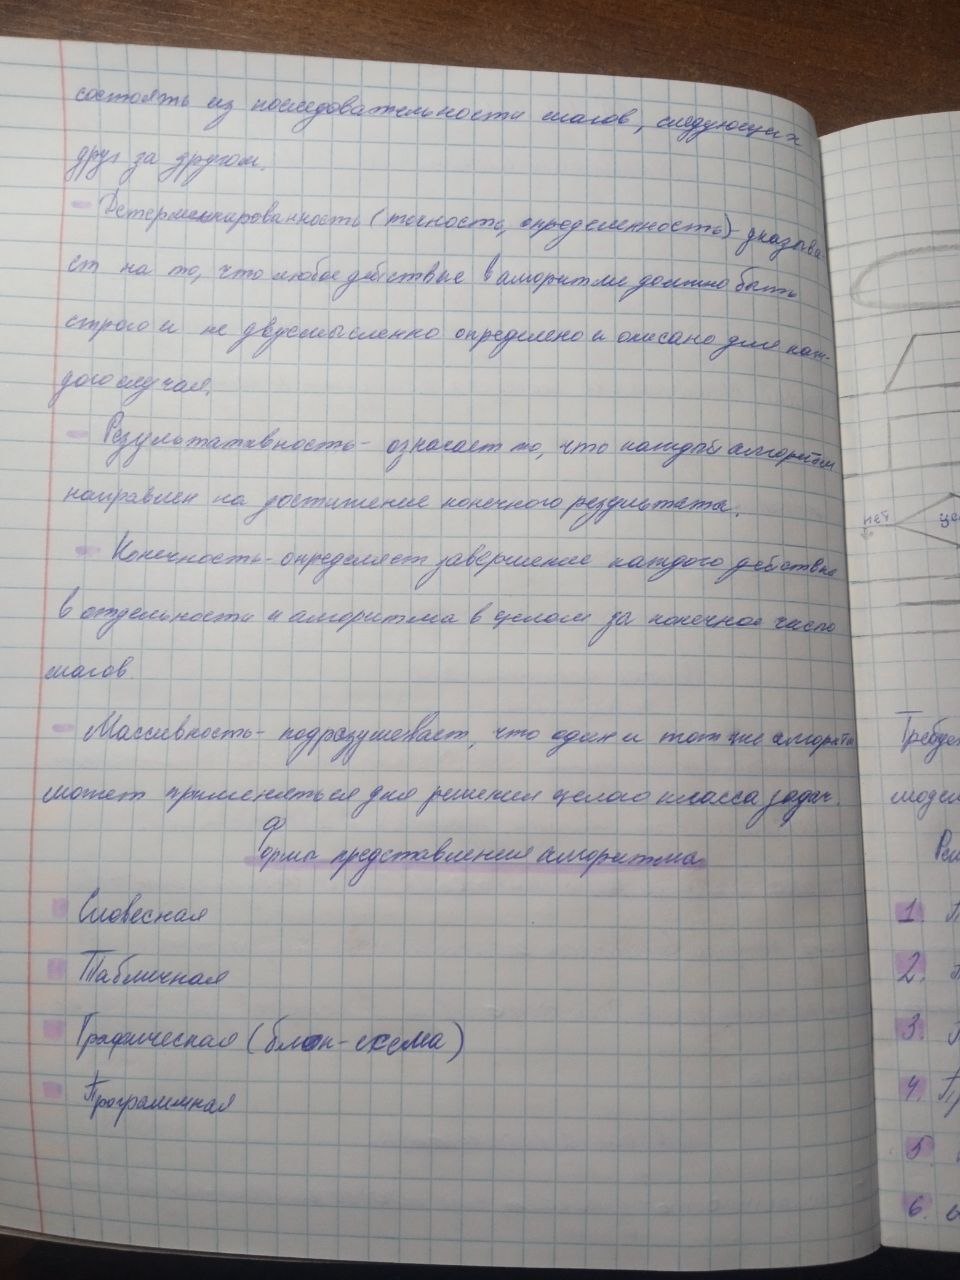 состоять из последовательности шагов, следующих
друг за другом.
- Детерменированность (точность, определенность) - указыва
ет на то, что любое действие в алгоритме должно быть
строго и не двусмысленно определено и описано для каж-
дого случая.
- Результативность - означает то, что каждый алгоритм
направлен на достижение конечного результата.
- Конечность - определяет завершение каждого действия
в отдельности и алгоритма в целом за конечное число
шагов.
- Массивность - подразумевает, что один и тот же алгоритм
может применяться для решения целого класса задач.
Формы представления алгоритма
Словесная
Табличная
Графическая (блок-схема)
Программная
нет
1.
2.
3.
4.
5
6.